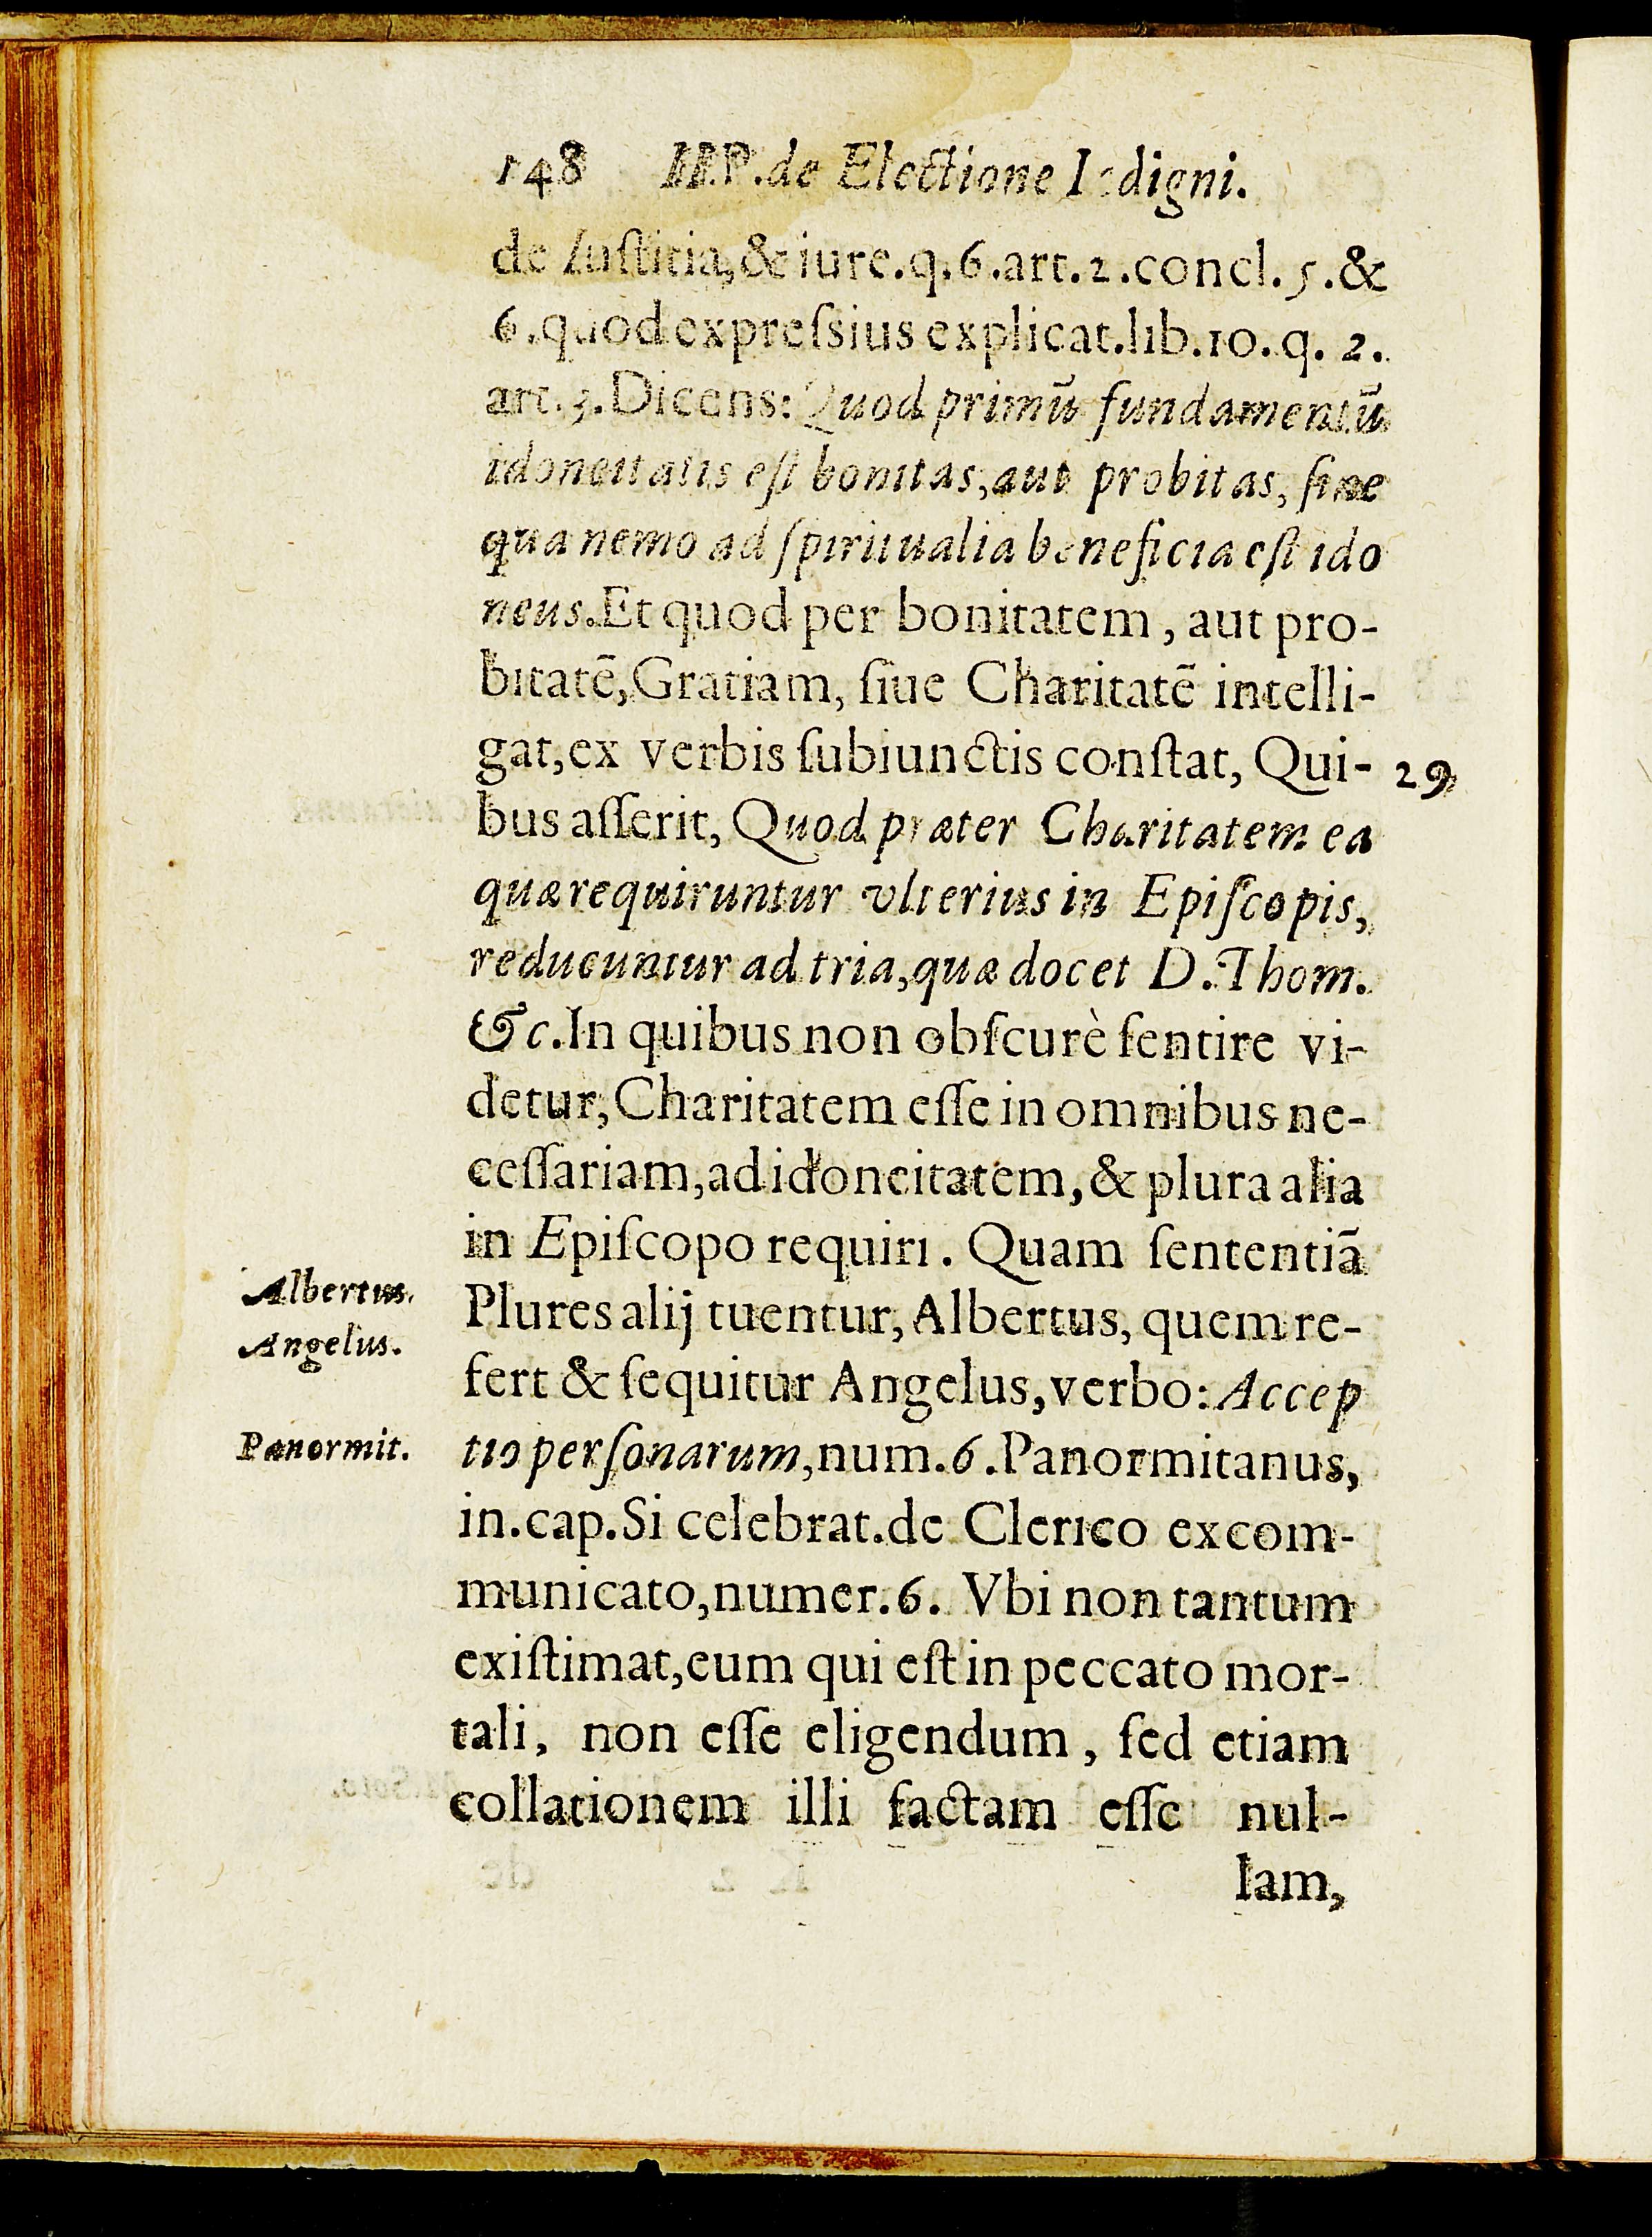 148 II.P.de Electione Indigni.
de Iuſtitia,& iure.q.6.art.2.concl.5.&
6.quod expreſsius explicat.lib.10.q. 2.
art.3.Dicens: Quod primū fundamentū
idoneitatis eſt bonitas,aut probitas, ſine
qua nemo ad ſpiritualia beneficia eſt ido
neus.Et quod per bonitatem, aut pro-
bitatē,Gratiam, ſiue Charitatē intelli-
gat,ex verbis ſubiunctis conſtat, Qui- 29
bus aſſerit, Quod præter Charitatem ea
quæ requiruntur vlterius in Epiſcopis,
reducuntur ad tria,quæ docet D.Thom.
&c.In quibus non obſcurè ſentire vi-
detur,Charitatem eſſe in omnibus ne-
ceſſariam,ad idoneitatem,& plura alia
in Epiſcopo requiri. Quam ſententiā
Albertus.
Plures alij tuentur, Albertus, quem re-
Angelus.
fert & ſequitur Angelus,verbo: Accep
Panormit.
tio perſonarum,num.6.Panormitanus,
in.cap.Si celebrat.de Clerico excom-
municato,numer.6. Vbi non tantum
exiſtimat,eum qui eſt in peccato mor-
tali, non eſſe eligendum, ſed etiam
collationem illi factam eſſe nul-
lam,